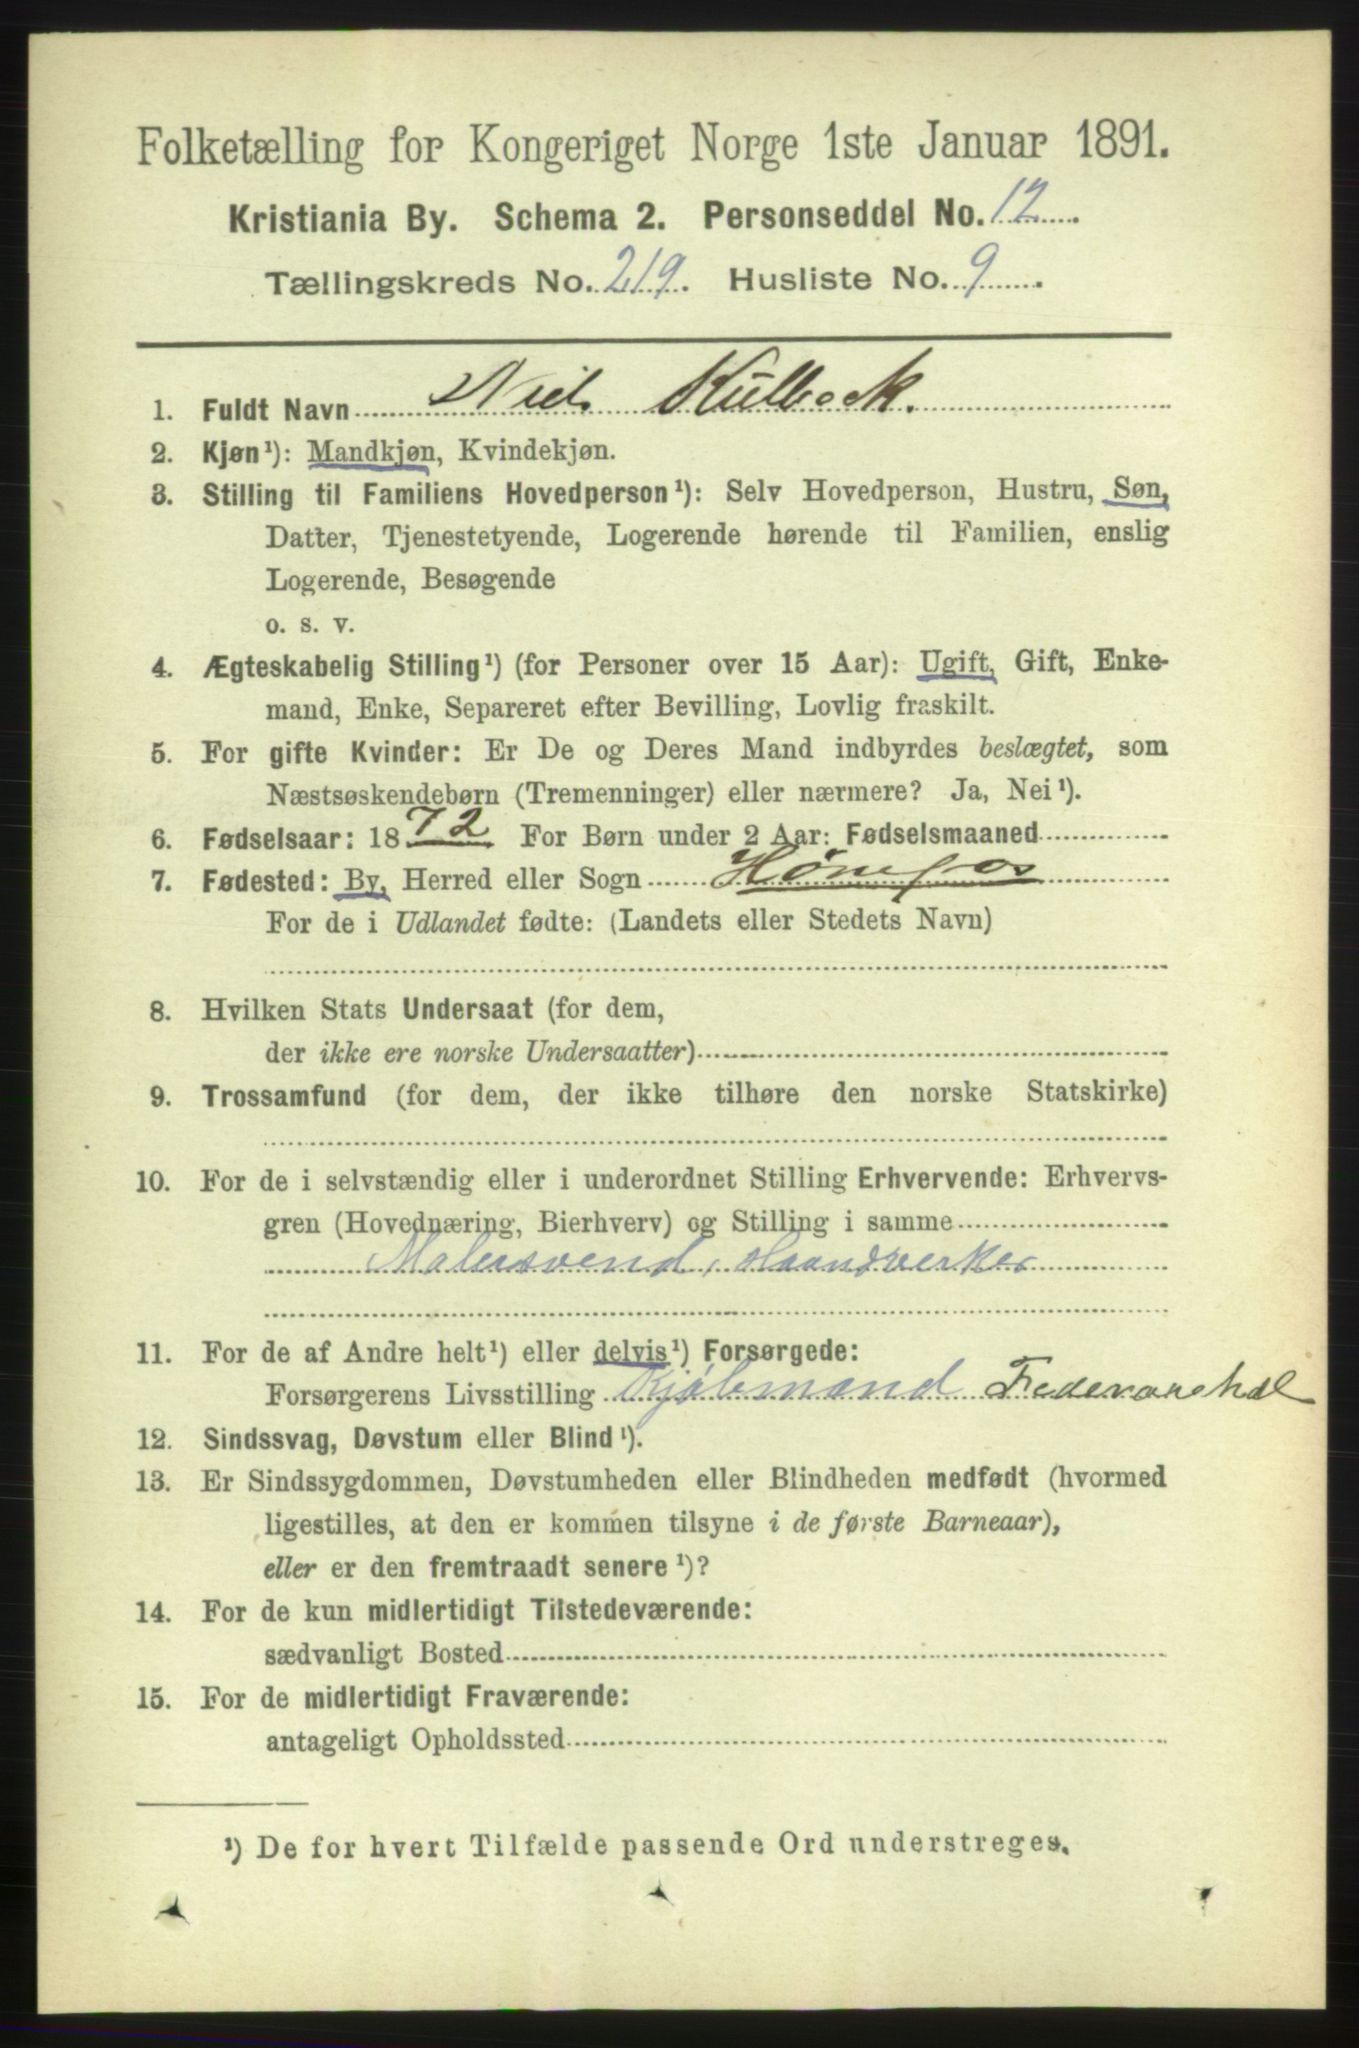 Folketælling for Kongeriget Norge 1ste Januar 1891.
Kristiania By. Schema 2. Personseddel No. 12
Tællingskreds No. 219. Husliste No. 9
1. Fuldt Navn Niels Kulbeck.
2. Kjøn¹): Mandkjøn, Kvindekjøn.
3. Stilling til Familiens Hovedperson¹): Selv Hovedperson, Hustru, Søn,
Datter, Tjenestetyende, Logerende hørende til Familien, enslig
Logerende, Besøgende
o. s. v.
4. Ægteskabelig Stilling¹) (for Personer over 15 Aar): Ugift, Gift, Enke-
mand, Enke, Separeret efter Bevilling, Lovlig fraskilt.
5. For gifte Kvinder: Er De og Deres Mand indbyrdes beslægtet, som
Næstsøskendebørn (Tremenninger) eller nærmere? Ja, Nei¹).
6. Fødselsaar: 1872 For Børn under 2 Aar: Fødselsmaaned
7. Fødested: By, Herred eller Sogn Hønefos
For de i Udlandet fødte: (Landets eller Stedets Navn)
8. Hvilken Stats Undersaat (for dem,
der ikke ere norske Undersaatter)
9. Trossamfund (for dem, der ikke tilhøre den norske Statskirke)
10. For de i selvstændig eller i underordnet Stilling Erhvervende: Erhvervs-
gren (Hovednæring, Bierhverv) og Stilling i samme
Malersvend, Haandverker
11. For de af Andre helt¹) eller delvis¹) Forsørgede:
Forsørgerens Livsstilling Kjøbmand
12. Sindssvag, Døvstum eller Blind¹).
13. Er Sindssygdommen, Døvstumheden eller Blindheden medfødt (hvormed
ligestilles, at den er kommen tilsyne i de første Barneaar),
eller er den fremtraadt senere¹)?
14. For de kun midlertidigt Tilstedeværende:
sædvanligt Bosted
15. For de midlertidigt Fraværende:
antageligt Opholdssted
¹) De for hvert Tilfælde passende Ord understreges.